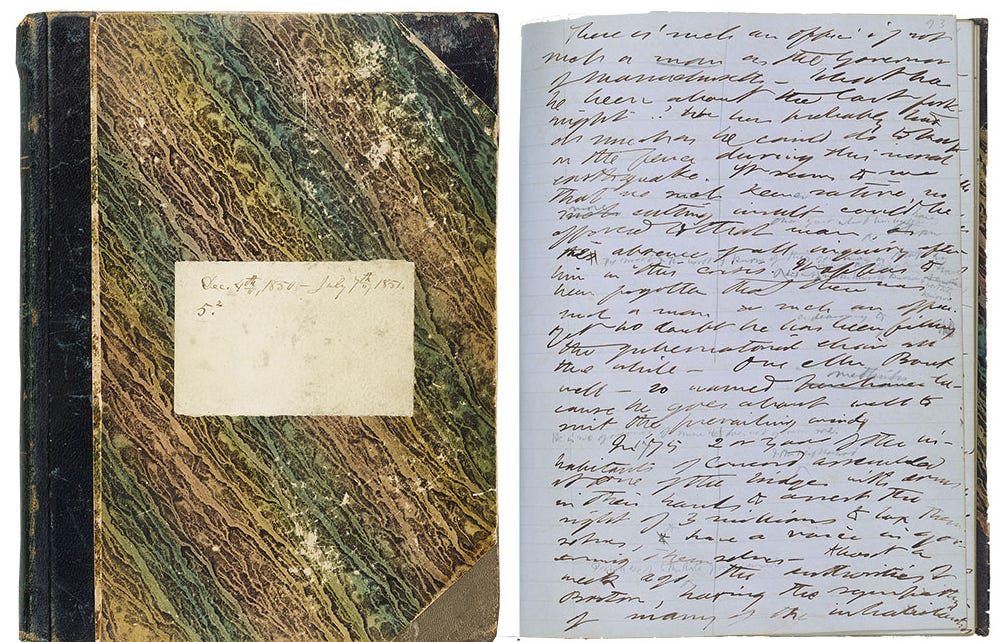 Dec. 4th, 1850 – July 7th, 1851.
5.
93
There is such an office if not
such a man as the Governor
of Massachusetts – What has
he been about the last fort-
night? He has probably had
as much as he could do to keep
on the fence during this moral
earthquake. It seems to me
that no such keen satire, no
such cutting insult could be
offered to that man, as
the absence of all inquiry after
him in this crisis. It appears to
have been forgotten that there was
such a man or such an office.
Yet no doubt he has been filling
the gubernatorial chair all
the while – One Mr Bout-
well – so named be-
cause he goes about well to
suit the prevailing wind
In '75 2 or 300 of the in-
habitants of Concord assembled
at one of the bridges with arms
in their hands to assert the
right of 3 millions to tax them-
selves, & have a voice in gov-
erning themselves – About a
week ago the authorities of
Boston, having the sympathy
of many of the inhabitants